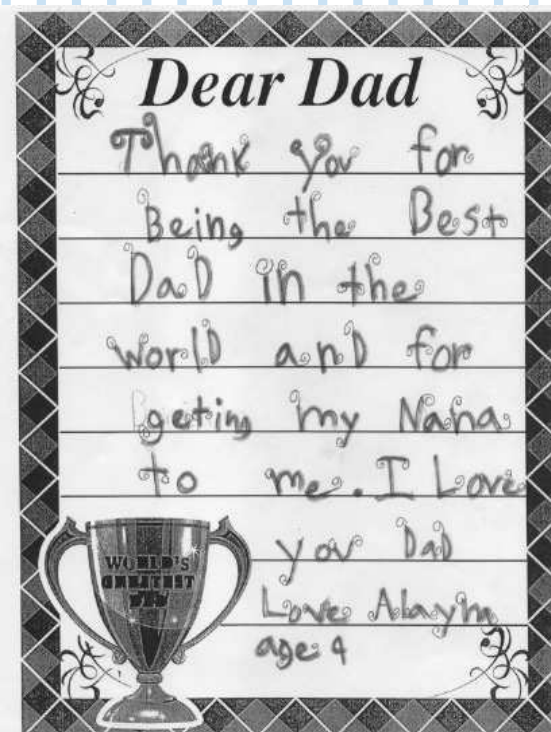 Dear Dad
Thank you for
Being the Best
DaD in the
worlD anD for
geting my Nana
to me. I Love
you DaD
Love Alayna
age 4
WORLD'S
GREATEST
DAD